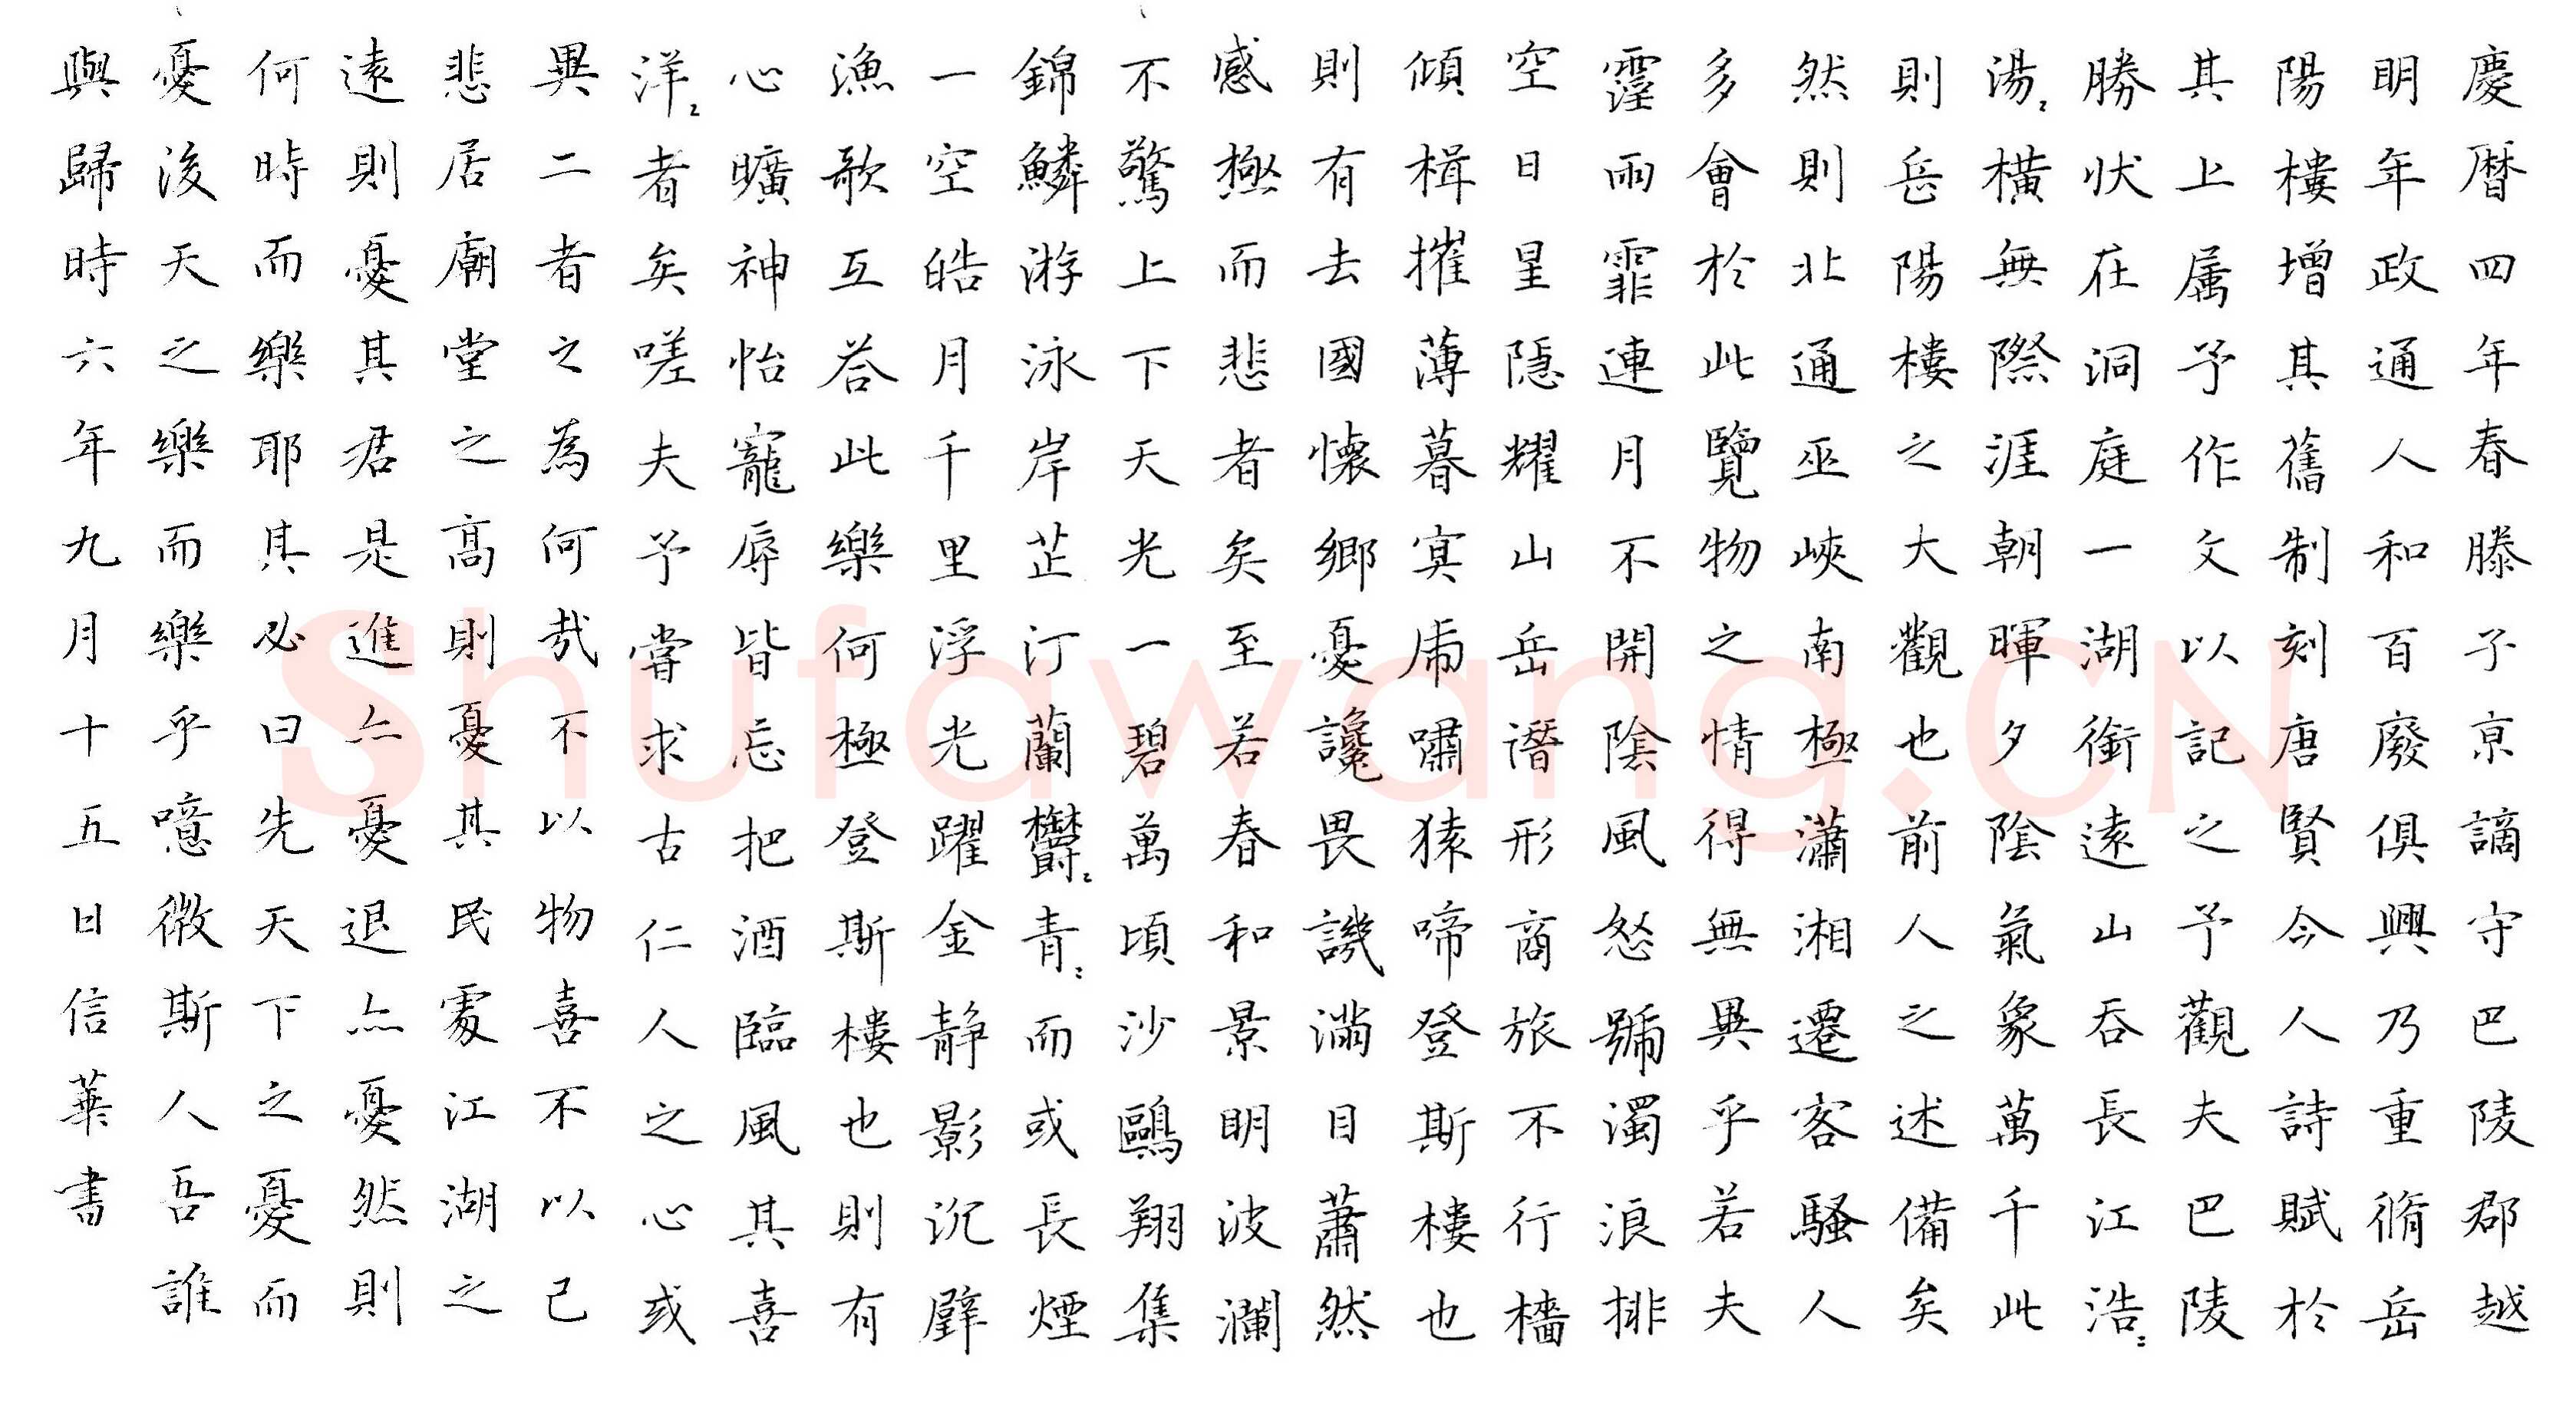 慶暦四年春滕子亰謫守巴陵郡越
明年政通人和百廢俱興乃重脩岳
陽樓增其舊制刻唐賢今人詩賦於
其上属予作文以記之予觀夫巴陵
勝状在洞庭一湖銜遠山吞長江浩〻
湯〻橫無際涯朝暉夕陰氣象萬千此
則岳陽樓之大觀也前人之述備矣
然則北通巫峽南極瀟湘遷客騷人
多會於此覽物之情得無異乎若夫
霪雨霏連月不開陰風怒號濁浪排
空日星隱耀山岳潛形商旅不行檣
傾楫摧薄暮冥虎嘯猿啼登斯樓也
則有去國懷鄉憂讒畏譏滿目蕭然
感極而悲者矣至若春和景明波瀾
不驚上下天光一碧萬頃沙鷗翔集
錦鱗游泳岸芷汀蘭鬱〻青〻而或長煙
一空皓月千里浮光躍金静影沉璧
漁歌互荅此樂何極登斯樓也則有
心曠神怡寵辱皆忘把酒臨風其喜
洋〻者矣嗟夫予嘗求古仁人之心或
異二者之為何哉不以物喜不以己
悲居廟堂之高則憂其民處江湖之
遠則憂其君是進亦憂退亦憂然則
何時而樂耶其必曰先天下之憂而
憂後天之樂而樂乎噫微斯人吾誰
與歸時六年九月十五日信華書
Shufawang.CN